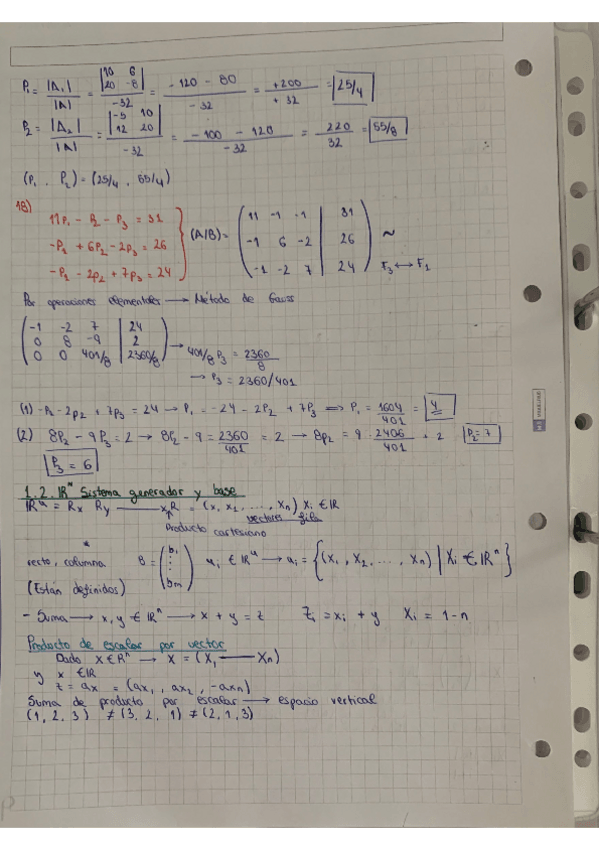 P₁ = |A₁| / |A| = |10 6; 20 -8| / -32 = -120 - 80 / -32 = +200 / +32 = 25/4
P₂ = |A₂| / |A| = |-5 10; 12 20| / -32 = -100 - 120 / -32 = 220 / 32 = 55/8
(P₁, P₂) = (25/4, 55/4)
18)
11P₁ - P₂ - P₃ = 31
-P₁ + 6P₂ - 2P₃ = 26
-P₁ - 2P₂ + 7P₃ = 24
(A/B) = (11 -1 -1 | 31; -1 6 -2 | 26; -1 -2 7 | 24) ~ F₃ ↔ F₁
Por operaciones elementales → Método de Gauss
(-1 -2 7 | 24; 0 8 -9 | 2; 0 0 401/8 | 2360/8) → 401/8 P₃ = 2360/8
→ P₃ = 2360/401
(1) -P₁ - 2P₂ + 7P₃ = 24 → P₁ = -24 - 2P₂ + 7P₃ ⟹ P₁ = 1604/401 = 4
(2) 8P₂ - 9P₃ = 2 → 8P₂ - 9 = 2360/401 = 2 → 8P₂ = 9 · 2406/401 + 2 P₂ = 7
P₃ = 6
1.2. ℝⁿ Sistema generador y base
ℝⁿ = Rx Ry — x R = (x, x₂, ..., Xn) Xi ∈ ℝ
vectores fila
Producto cartesiano
vecto, columna B = (b₁ ⋮ bm) ui ∈ ℝⁿ → ui = {(x₁, x₂, ..., xn) | Xi ∈ ℝⁿ}
(Están definidos)
- Suma → x, y ∈ ℝⁿ → x + y = z Zi = xi + y Xi = 1 - n
Producto de escalar por vector
Dado X ∈ Rⁿ → X = (X₁ — Xn)
y x ∈ ℝ
z = ax = (ax₁, ax₂, -axn)
Suma de producto por escalar → espacio vertical
(1, 2, 3) ≠ (3, 2, 1) ≠ (2, 1, 3)